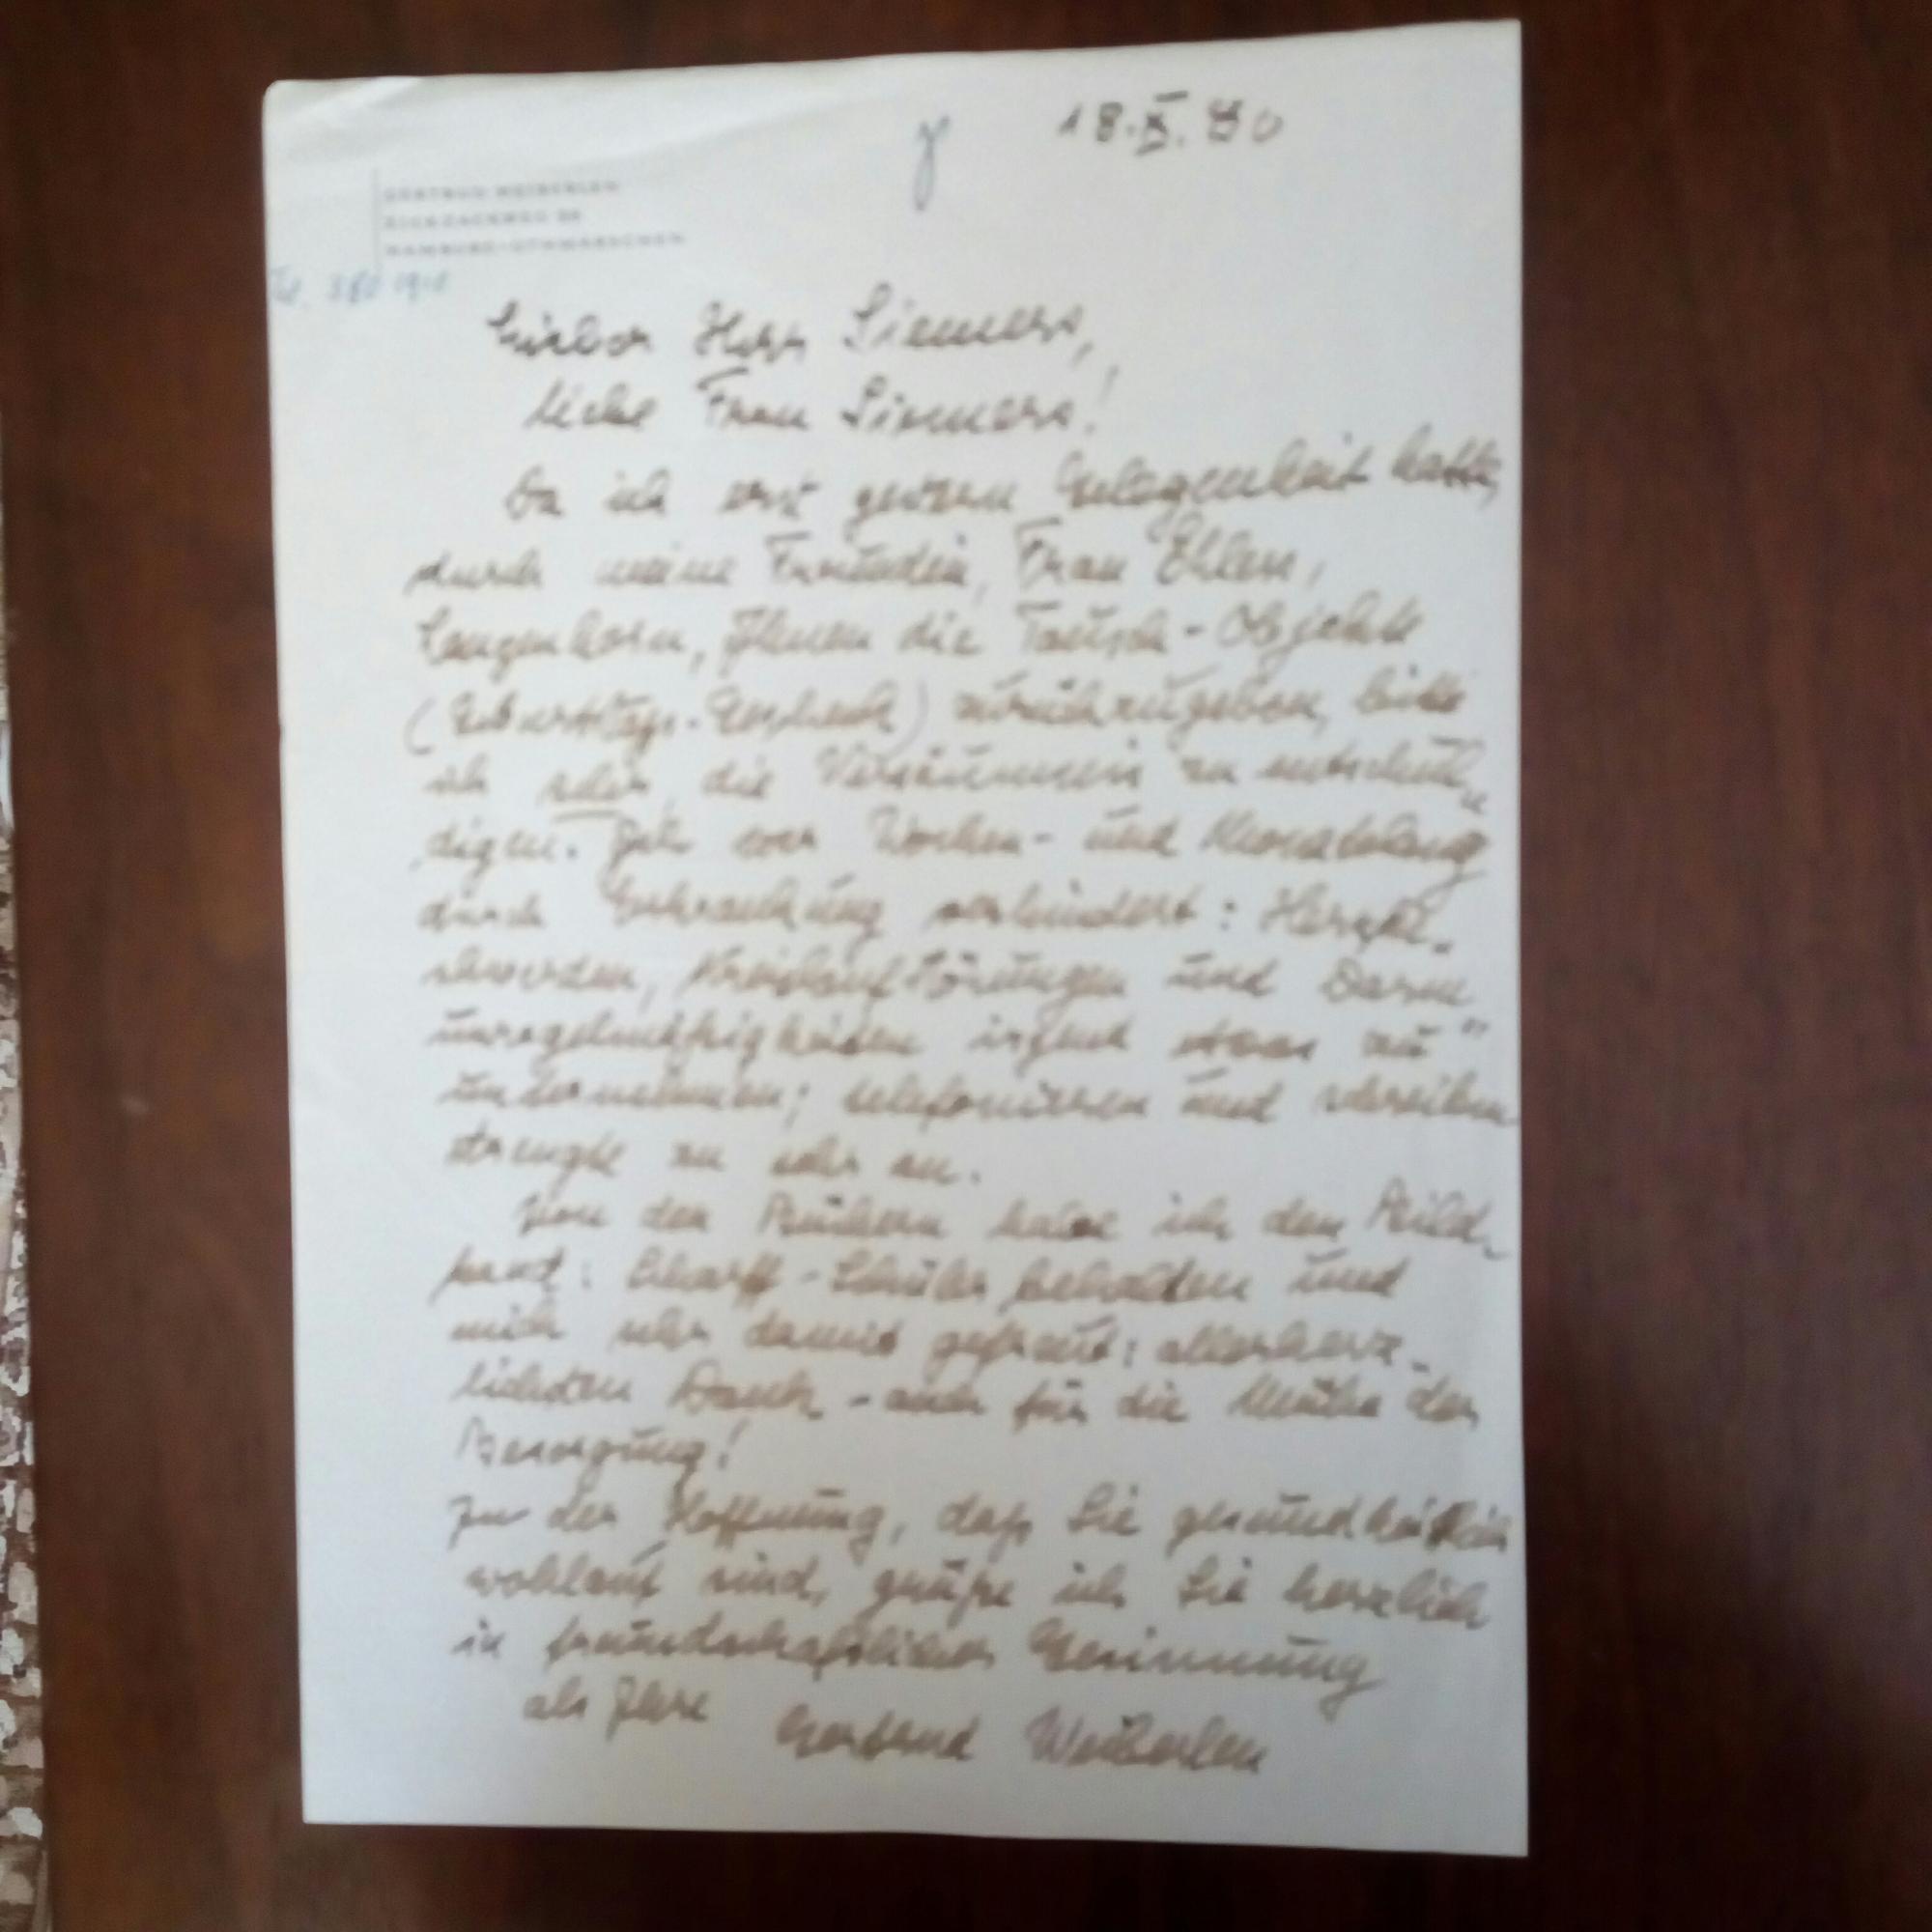 18.X.80
GERTRUD WEIBERLEN
ZICKZACKWEG
HAMBURG-OTHMARSCHEN
Tel.
Lieber Herr Siemers,
liebe Frau Siemers!
Da ich erst gestern Gelegenheit hatte,
durch meine Freundin, Frau Ehlers,
Langenhorn, Ihnen die Tausch-Objekte
(Geburtstags-Geschenk) zurückzugeben, bitte
ich sehr, die Versäumnis zu entschul-
digen. Ich war Wochen- und Monatelang
durch Erkrankung verhindert: Herzbe-
schwerden, Kreislaufstörungen und Darm-
unregelmäßigkeiten irgend etwas zu
unternehmen; telefonieren und schreiben
strengte zu sehr an.
Von den Büchern habe ich den Bild-
band: Scharff-Schüler behalten und
mich sehr damit gefreut: allerherz-
lichsten Dank - auch für die Mühe der
Besorgung!
In der Hoffnung, daß Sie gesundheitlich
wohlauf sind, grüße ich Sie herzlich
in freundschaftlicher Gesinnung
als Ihre Gertrud Weiberlen